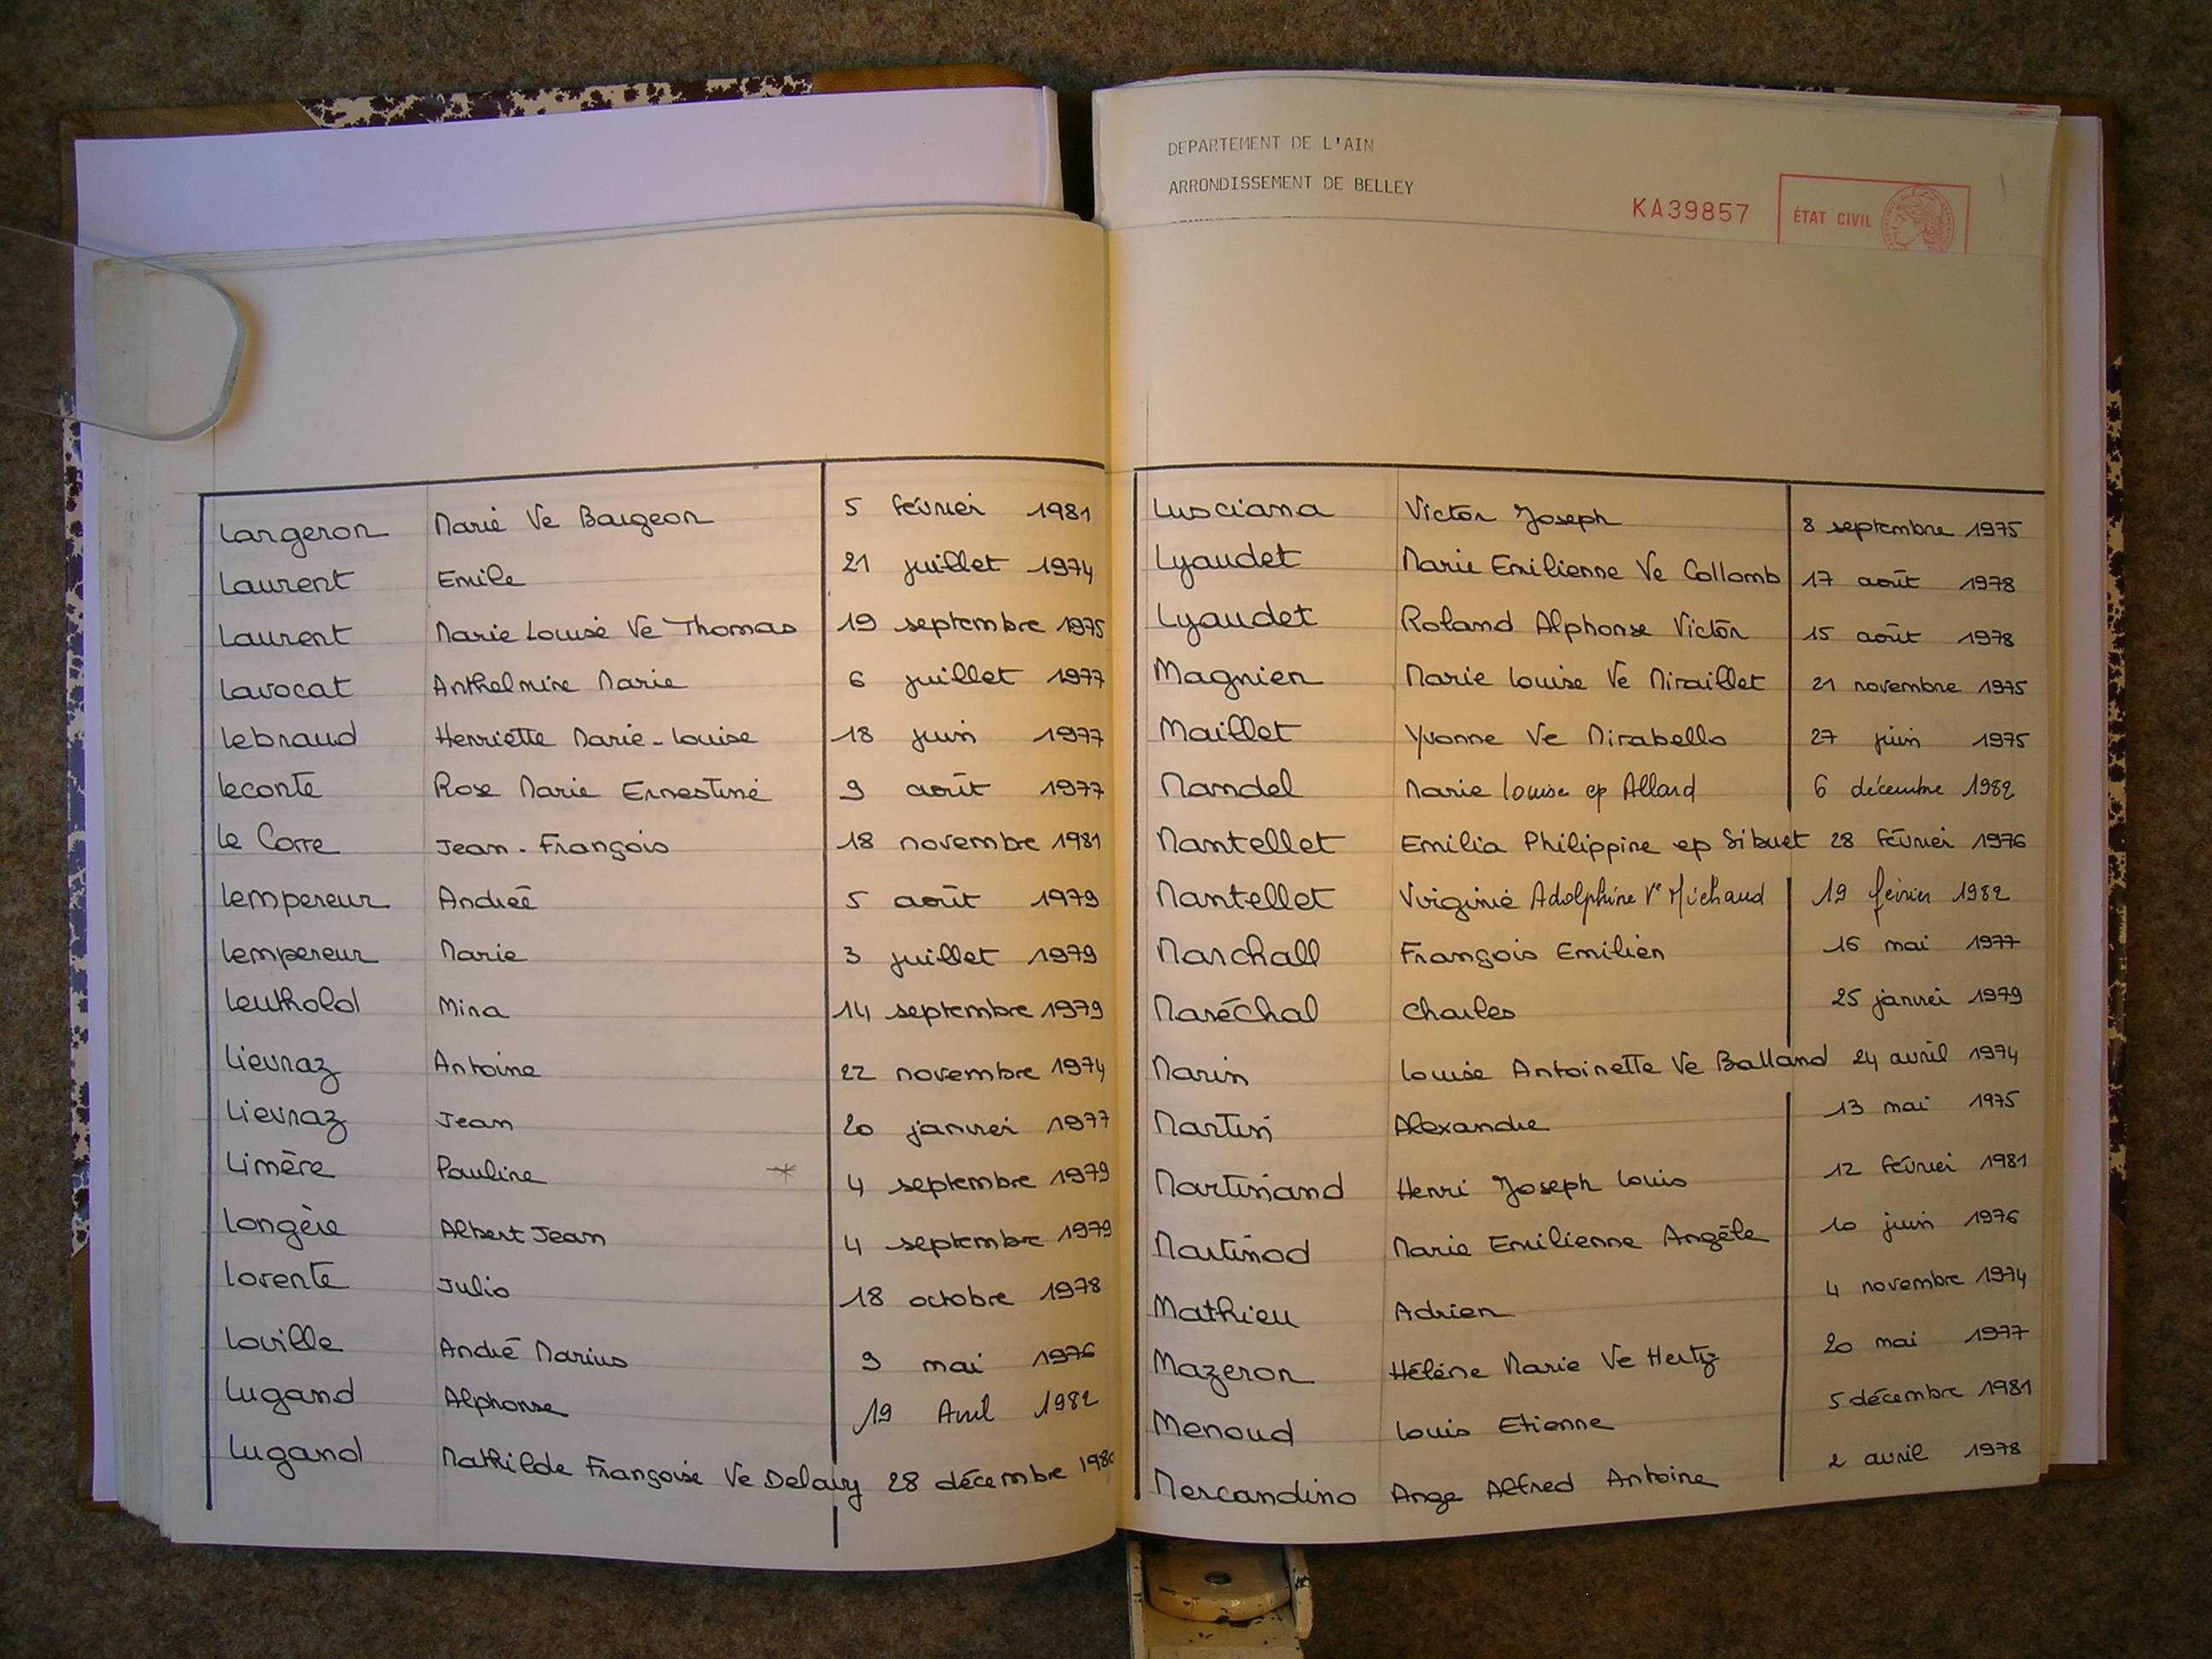 DEPARTEMENT DE L'AIN
ARRONDISSEMENT DE BELLEY
KA39857
ÉTAT CIVIL
Largeron Marie Ve Baugeon 5 février 1981
Laurent Emile 21 juillet 1974
Laurent Marie Louise Ve Thomas 19 septembre 1975
Lavocat Anthelmine Marie 6 juillet 1977
Lebraud Henriette Marie-Louise 18 juin 1977
Leconte Rose Marie Ernestine 9 août 1977
Le Corre Jean-François 18 novembre 1981
Lempereur Andrée 5 août 1979
Lempereur Marie 3 juillet 1979
Leuthold Mina 14 septembre 1979
Lievraz Antoine 22 novembre 1974
Lievraz Jean 20 janvier 1977
Limère Pauline * 4 septembre 1979
Longère Albert Jean 4 septembre 1979
Lorente Julio 18 octobre 1978
Loville André Marius 9 mai 1976
Lugand Alphonse 19 Avril 1982
Lugand Mathilde Françoise Ve Delavy 28 décembre 1980
Lusciana Victor Joseph 8 septembre 1975
Lyaudet Marie Emilienne Ve Collomb 17 août 1978
Lyaudet Roland Alphonse Victor 15 août 1978
Magnien Marie Louise Ve Miraillet 21 novembre 1975
Maillet Yvonne Ve Mirabello 27 juin 1975
Mandel Marie Louise ep Allard 6 décembre 1982
Mantellet Emilia Philippine ep Sibuet 28 février 1976
Mantellet Virginie Adolphine Ve Michaud 19 février 1982
Marchall François Emilien 16 mai 1977
Maréchal Charles 25 janvier 1979
Marin Louise Antoinette Ve Balland 24 avril 1974
Martin Alexandre 13 mai 1975
Martinand Henri Joseph Louis 12 février 1981
Martinod Marie Emilienne Angèle 10 juin 1976
Mathieu Adrien 4 novembre 1974
Mazeron Hélène Marie Ve Hertz 20 mai 1977
Menoud Louis Etienne 5 décembre 1981
Mercandino Ange Alfred Antoine 2 avril 1978